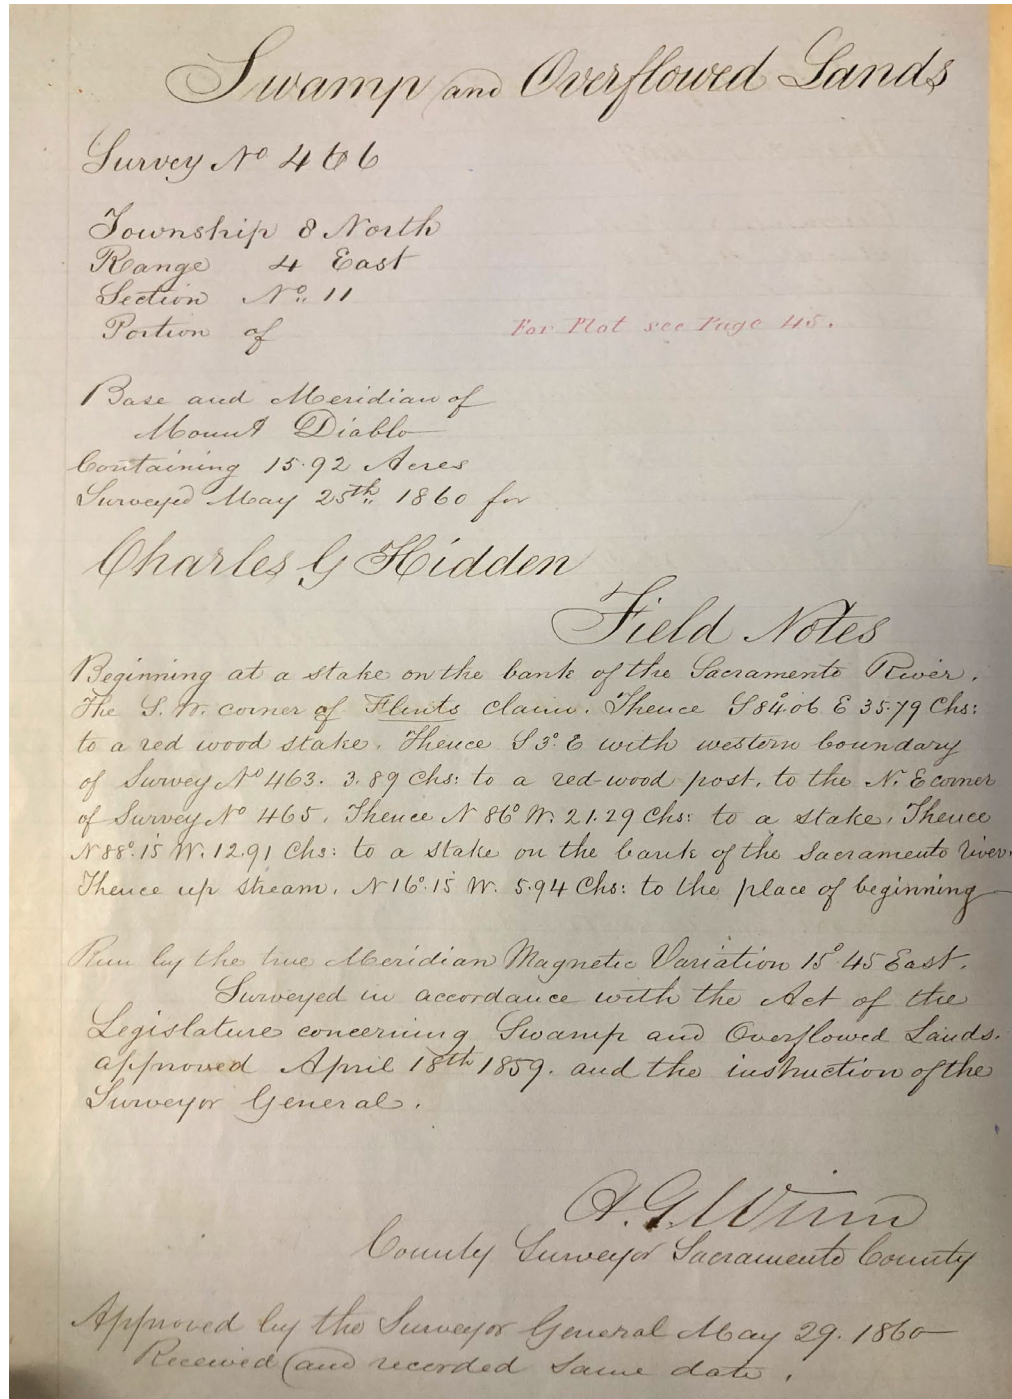 Swamp and Overflowed Lands
Survey No 466
Township 8 North
Range 4 East
Section No. 11
Portion of
For Plot see Page 45.
Base and Meridian of
Mount Diablo
Containing 15.92 Acres
Surveyed May 25th 1860 for
Charles G Hidden
Field Notes
Beginning at a stake on the bank of the Sacramento River.
The S. W. corner of Flints claim. Thence S 84°.06 E 35.79 Chs:
to a red wood stake. Thence S 3° E with western boundary
of Survey No 463. 3.89 Chs: to a red-wood post, to the N. E corner
of Survey No 465. Thence N 86° W. 21.29 Chs: to a stake. Thence
N 88°.15 W. 12.91 Chs: to a stake on the bank of the Sacramento River.
Thence up stream. N 16°.15 W. 5.94 Chs: to the place of beginning
Run by the true Meridian Magnetic Variation 15° 45 East.
Surveyed in accordance with the Act of the
Legislature concerning Swamp and Overflowed Lands.
approved April 18th 1859. and the instruction of the
Surveyor General.
A. G. Winn
County Surveyor Sacramento County
Approved by the Surveyor General May 29. 1860
Received and recorded same date.